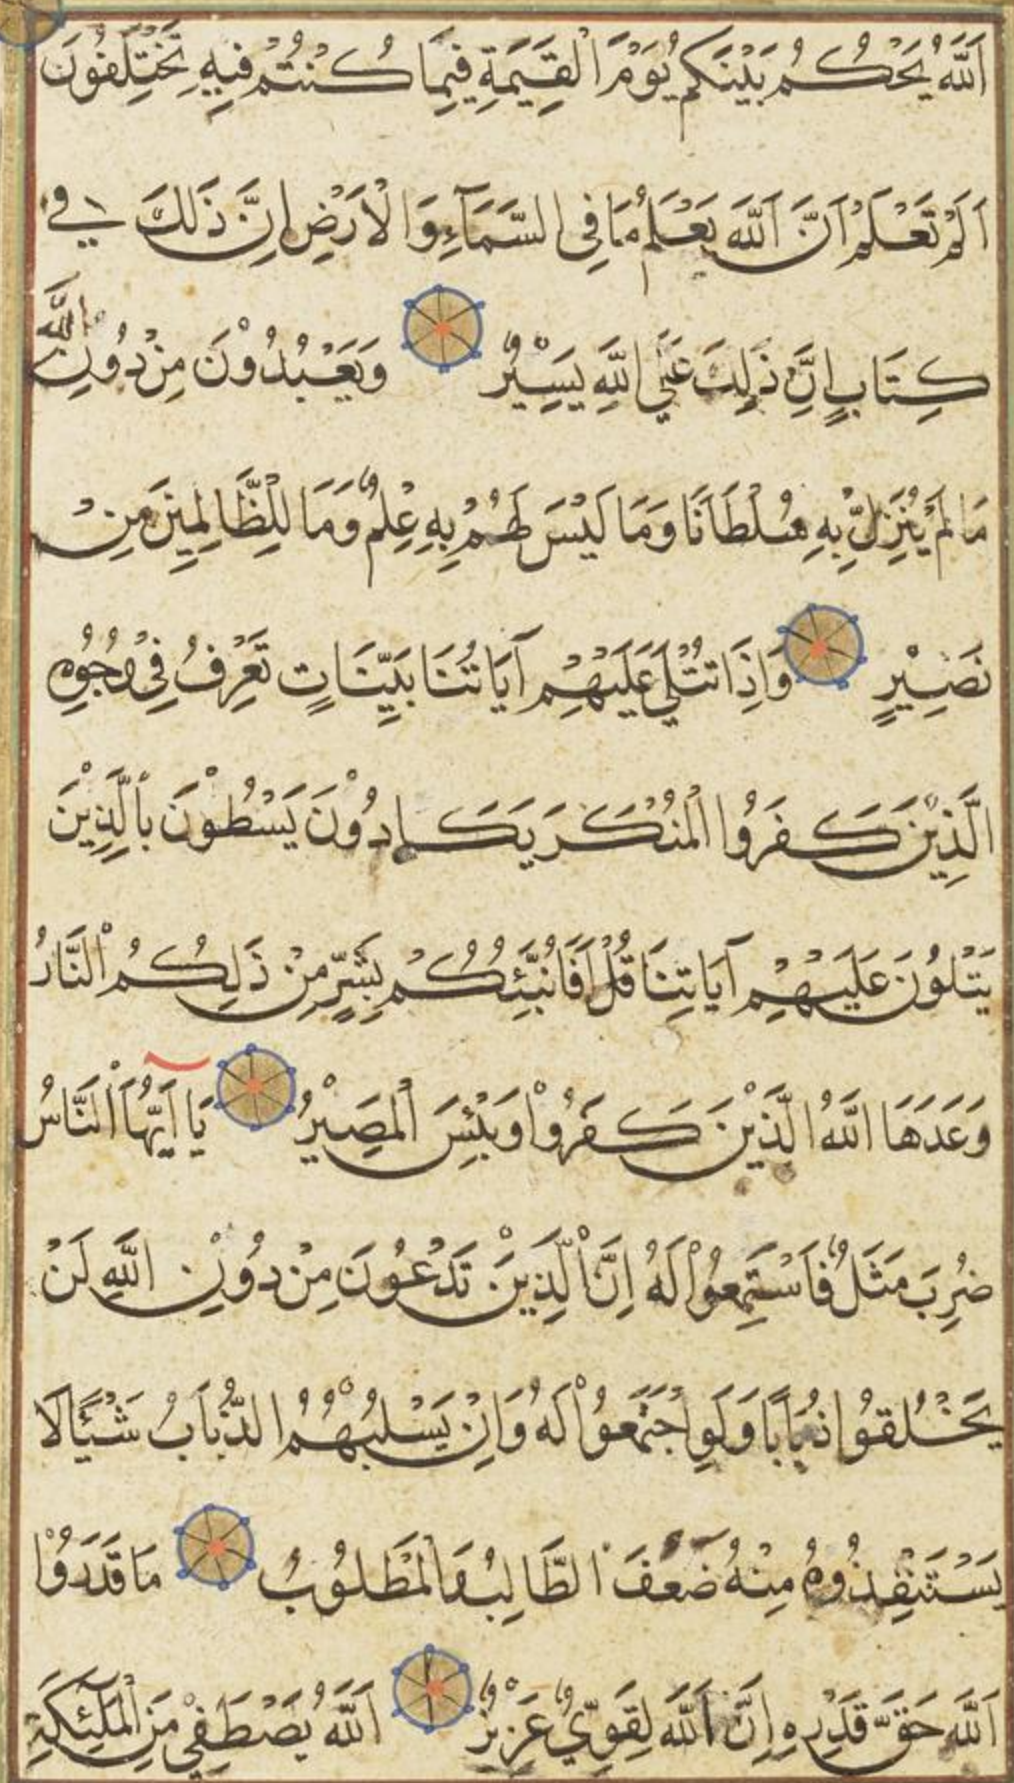 اَللَّهُ يَحْكُمُ بَيْنَكُمْ يَوْمَ الْقِيَمَةِ فِيمَا كُنْتُمْ فِيهِ تَخْتَلِفُونَ
اَلَمْ تَعْلَمْ اَنَّ اَللَّهَ يَعْلَمُ مَا فِى السَّمَآءِ وَالْاَرْضِ اِنَّ ذَلِكَ فِي
كِتَابٍ اِنَّ ذَلِكَ عَلَى اللَّهِ يَسِيْرٌ وَيَعْبُدُوْنَ مِنْ دُوْنِ اللَّهِ
مَا لَمْ يُنَزِّلْ بِهِ سُلْطَانًا وَمَا لَيْسَ لَهُمْ بِهِ عِلْمٌ وَمَا لِلظَّالِمِيْنَ مِنْ
نَصِيْرٍ وَاِذَا تُتْلَى عَلَيْهِمْ آيَاتُنَا بَيِّنَاتٍ تَعْرِفُ فِى وُجُوْهِ
الَّذِيْنَ كَفَرُوا الْمُنْكَرَ يَكَادُوْنَ يَسْطُوْنَ بِالَّذِيْنَ
يَتْلُوْنَ عَلَيْهِمْ آيَاتِنَا قُلْ اَفَاُنَبِّئُكُمْ بِشَرٍّ مِنْ ذَلِكُمُ النَّارُ
وَعَدَهَا اللَّهُ الَّذِيْنَ كَفَرُوْا وَبِئْسَ الْمَصِيْرُ يَا اَيُّهَا النَّاسُ
ضُرِبَ مَثَلٌ فَاسْتَمِعُوْا لَهُ اِنَّ الَّذِيْنَ تَدْعُوْنَ مِنْ دُوْنِ اللَّهِ لَنْ
يَخْلُقُوْا ذُبَابًا وَلَوِ اجْتَمَعُوْا لَهُ وَاِنْ يَسْلُبْهُمُ الذُّبَابُ شَيْئًا لَا
يَسْتَنْقِذُوْهُ مِنْهُ ضَعُفَ الطَّالِبُ وَالْمَطْلُوْبُ مَا قَدَرُوْا
اَللَّهَ حَقَّ قَدْرِهِ اِنَّ اَللَّهَ لَقَوِيٌّ عَزِيْزٌ اَللَّهُ يَصْطَفِي مِنَ الْمَلَئِكَةِ